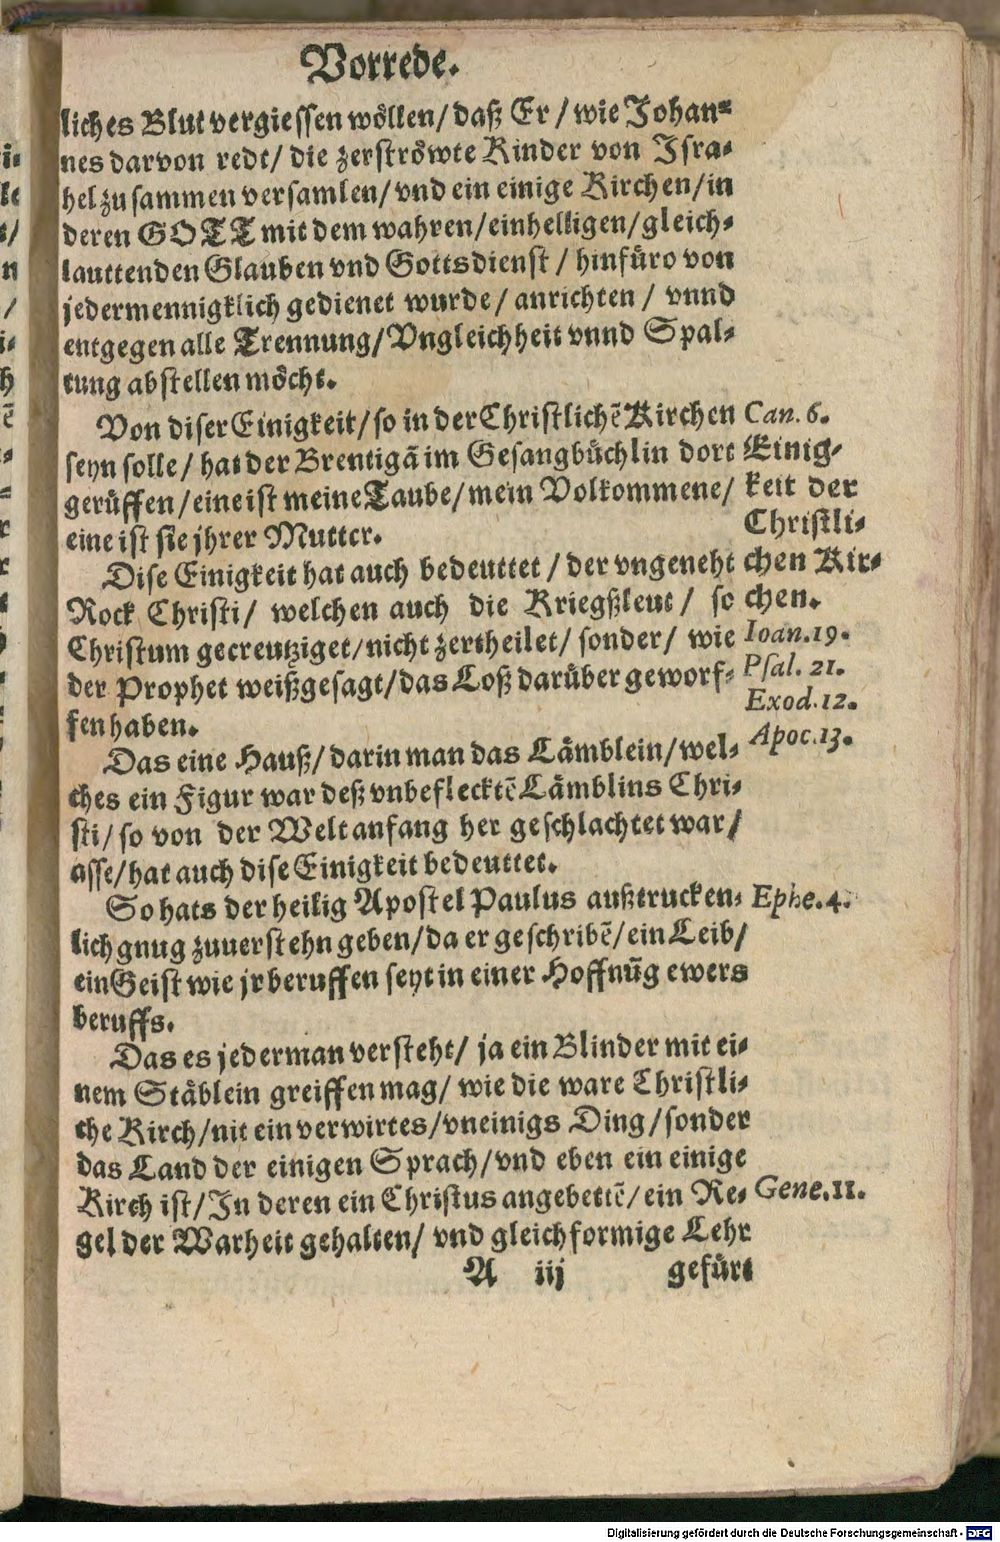 Vorrede.
liches Blut vergiessen wöllen/ daß Er/ wie Johan-
nes darvon redt/ die zerströwte Kinder von Isra-
hel zusammen versamlen/ vnd ein einige Kirchen/ in
deren GOTT mit dem wahren/ einhelligen/ gleich-
lauttenden Glauben vnd Gottsdienst/ hinfüro von
jedermennigklich gedienet wurde/ anrichten/ vnnd
entgegen alle Trennung/ Vngleichheit vnnd Spal-
tung abstellen möcht.
Von diser Einigkeit/ so in der Christlichẽ Kirchen
seyn solle/ hat der Breutigã im Gesangbüchlin dort
gerüffen/ eine ist meine Taube/ mein Volkommene/
eine ist sie jhrer Mutter.
Can. 6.
Einig-
keit der
Christli-
chen Kir-
chen.
Dise Einigkeit hat auch bedeuttet/ der vngeneht
Rock Christi/ welchen auch die Kriegßleut/ so
Christum gecreutziget/ nicht zertheilet/ sonder/ wie
der Prophet weißgesagt/ das Loß darüber geworf-
fen haben.
Ioan. 19.
Psal. 21.
Exod. 12.
Apoc. 13.
Das eine Hauß/ darin man das Lämblein/ wel-
ches ein Figur war deß vnbeflecktẽ Lämblins Chri-
sti/ so von der Welt anfang her geschlachtet war/
asse/ hat auch dise Einigkeit bedeuttet.
So hats der heilig Apostel Paulus außtrucken-
lich gnug zuuerstehn geben/ da er geschribẽ/ ein Leib/
ein Geist wie jr beruffen seyt in einer Hoffnũg ewers
beruffs.
Ephe. 4.
Das es jederman versteht/ ja ein Blinder mit ei-
nem Stäblein greiffen mag/ wie die ware Christli-
che Kirch/ nit ein verwirtes/ vneinigs Ding/ sonder
das Land der einigen Sprach/ vnd eben ein einige
Kirch ist/ In deren ein Christus angebettẽ/ ein Re-
gel der Warheit gehalten/ vnd gleichformige Lehr
Gene. 11.
A iij gefürt
Digitalisierung gefördert durch die Deutsche Forschungsgemeinschaft - DFG